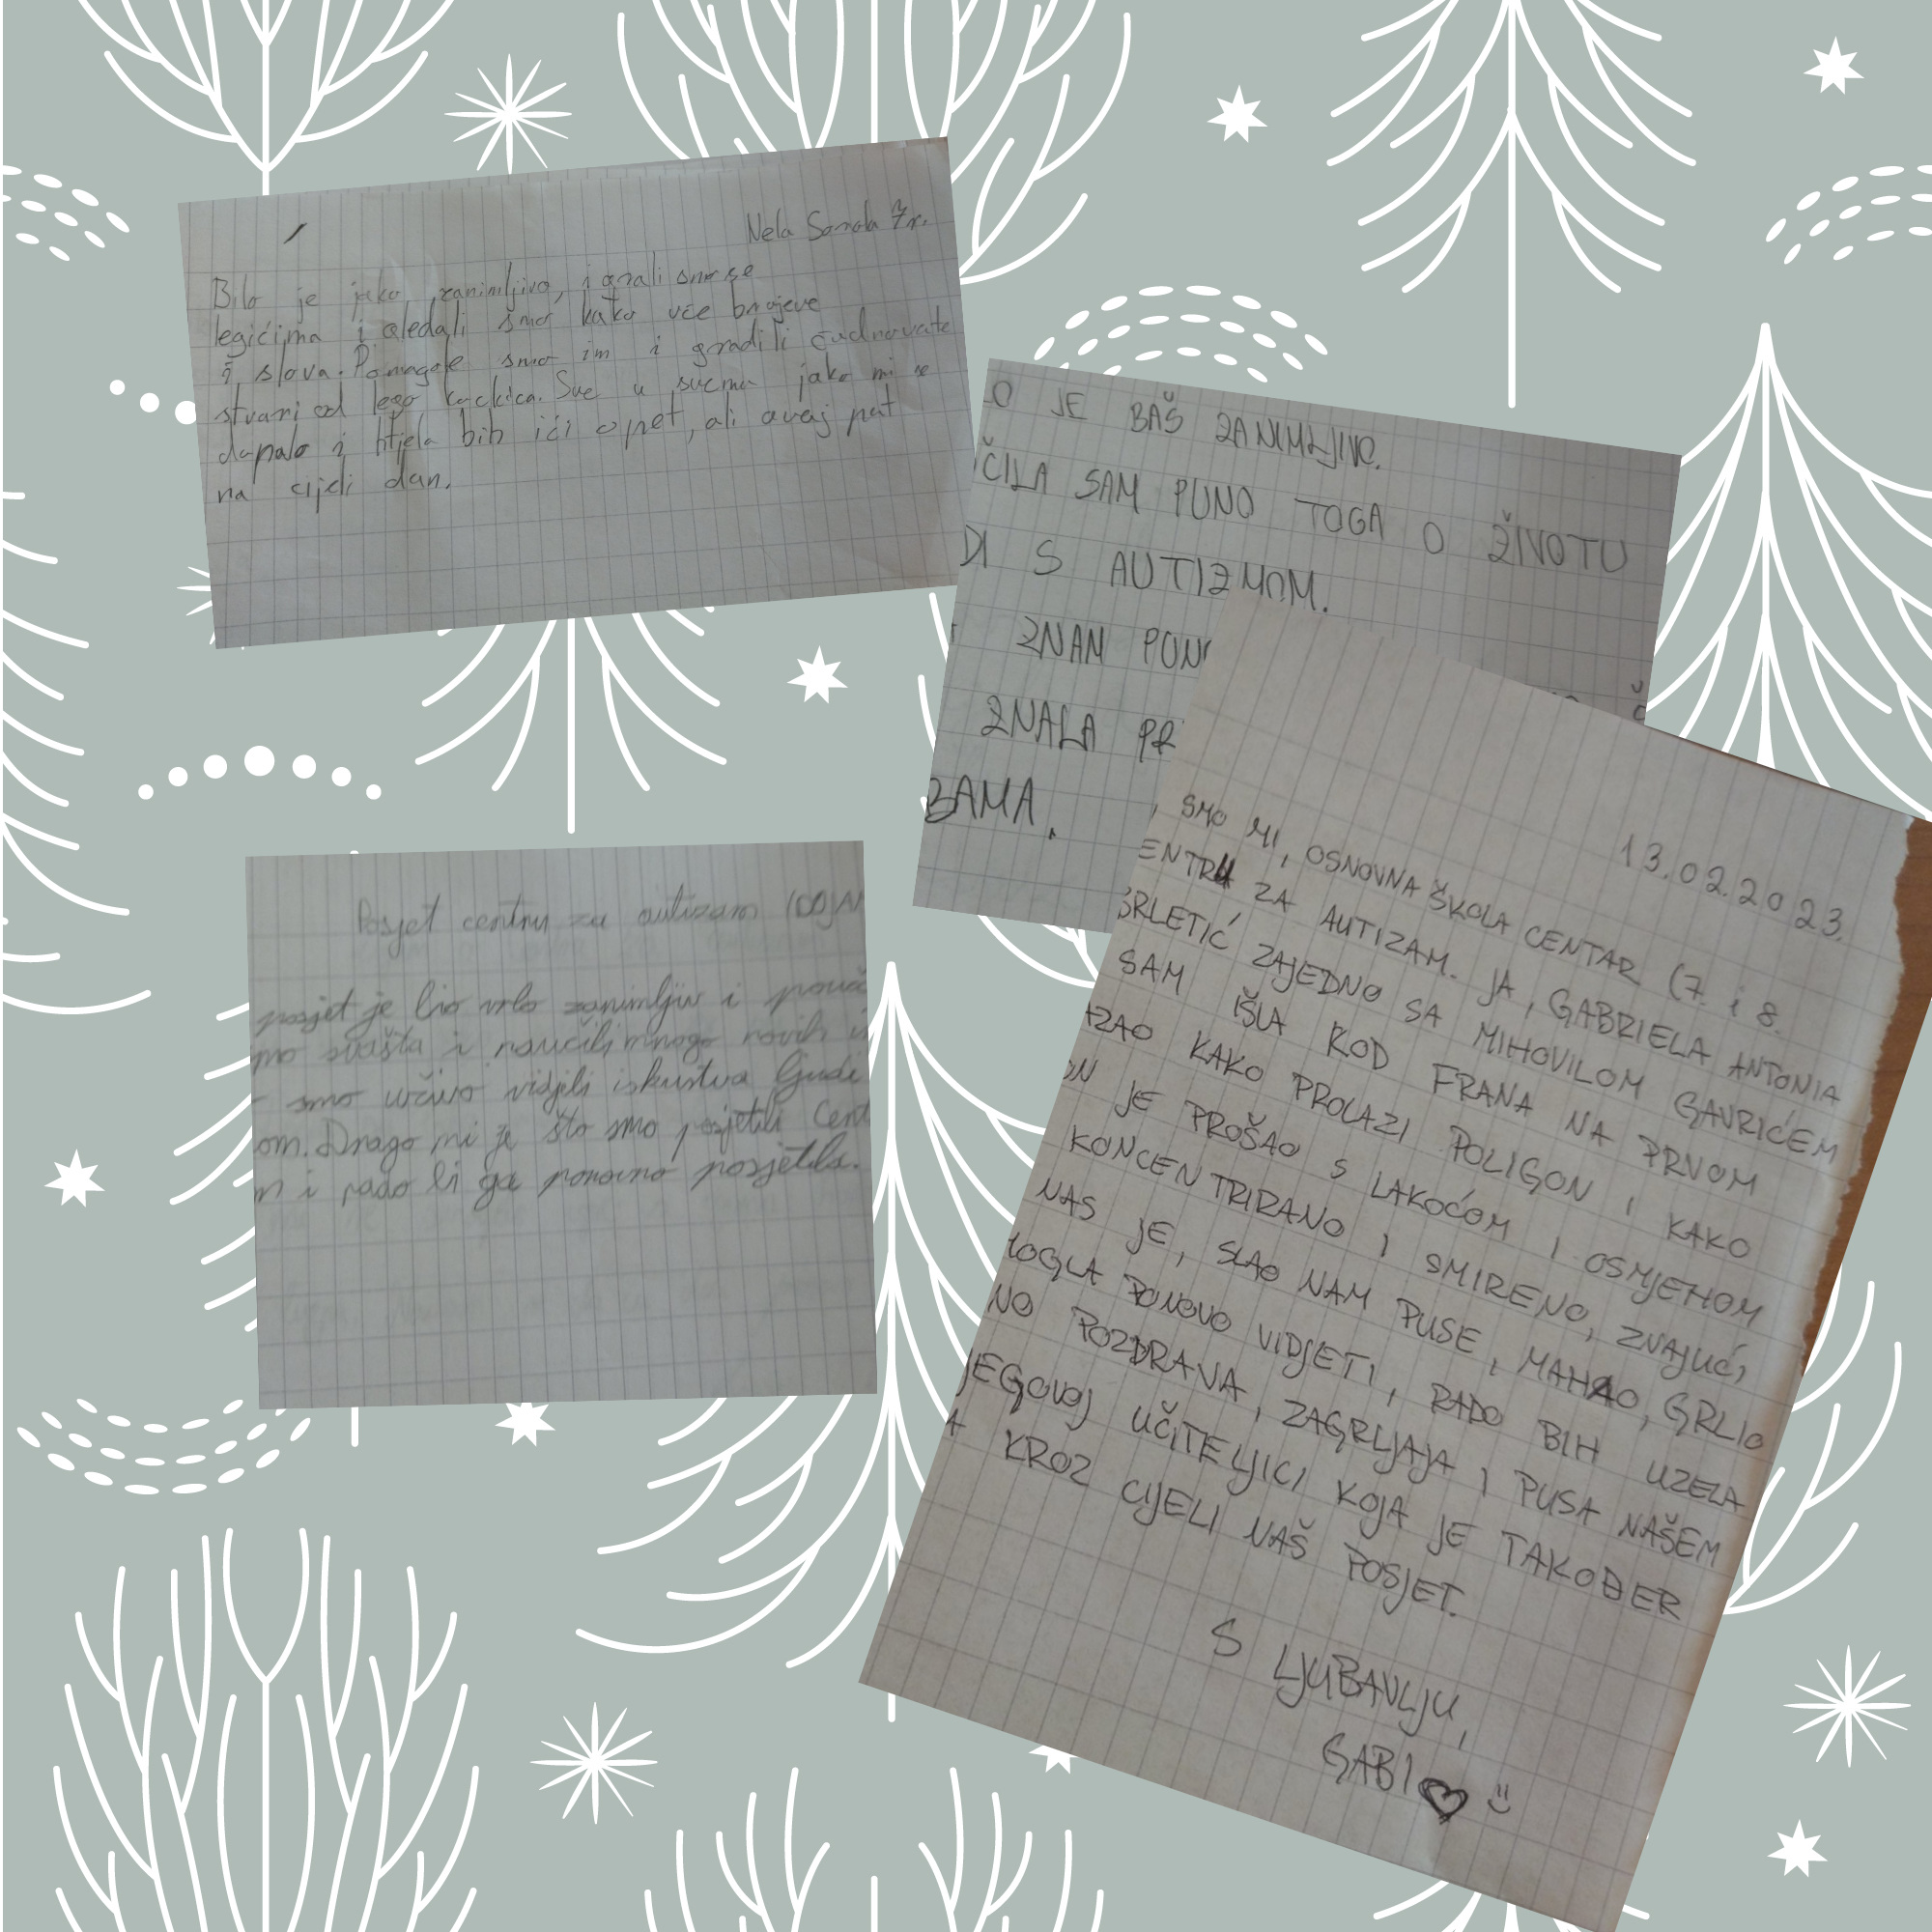 Nela 7.r.
Bilo je jako zanimljivo, igrali smo se
legićima i gledali smo kako uče brojeve
i slova. Pomagale smo im i gradili čudnovate
stvari od lego kockica. Sve u svemu jako mi se
dopalo i htjela bih ići opet, ali ovaj put
na cijeli dan.
O JE BAŠ ZANIMLJIVO.
ČILA SAM PUNO TOGA O ŽIVOTU
DI S AUTIZMOM.
ZNAM PUN
ZNALA PR
BAMA.
13.02.2023.
SMO MI, OSNOVNA ŠKOLA CENTAR (7. i 8.
ENTRU ZA AUTIZAM. JA, GABRIELA ANTONIA
BRLETIĆ ZAJEDNO SA MIHOVILOM GAVRIĆEM
SAM IŠLA KOD FRANA NA PRVOM
AZAO KAKO PROLAZI POLIGON I KAKO
ON JE PROŠAO S LAKOĆOM I OSMJEHOM
KONCENTRIRANO I SMIRENO, ZVAJUĆI
NAS JE, SLAO NAM PUSE, MAHAO, GRLIO
MOGLA PONOVO VIDJETI, RADO BIH UZELA
NO POZDRAVA, ZAGRLJAJA I PUSA NAŠEM
JEGOVOJ UČITELJICI KOJA JE TAKOĐER
A KROZ CIJELI NAŠ POSJET.
S LJUBAVLJU,
GABI
Posjet centru za autizam
posjet je bio vrlo zanimljiv i pouč
mo svašta i naučili mnogo novih
smo uživo vidjeli iskustva ljudi
om. Drago mi je što smo posjetili Cent
m i rado bi ga ponovno posjetila.